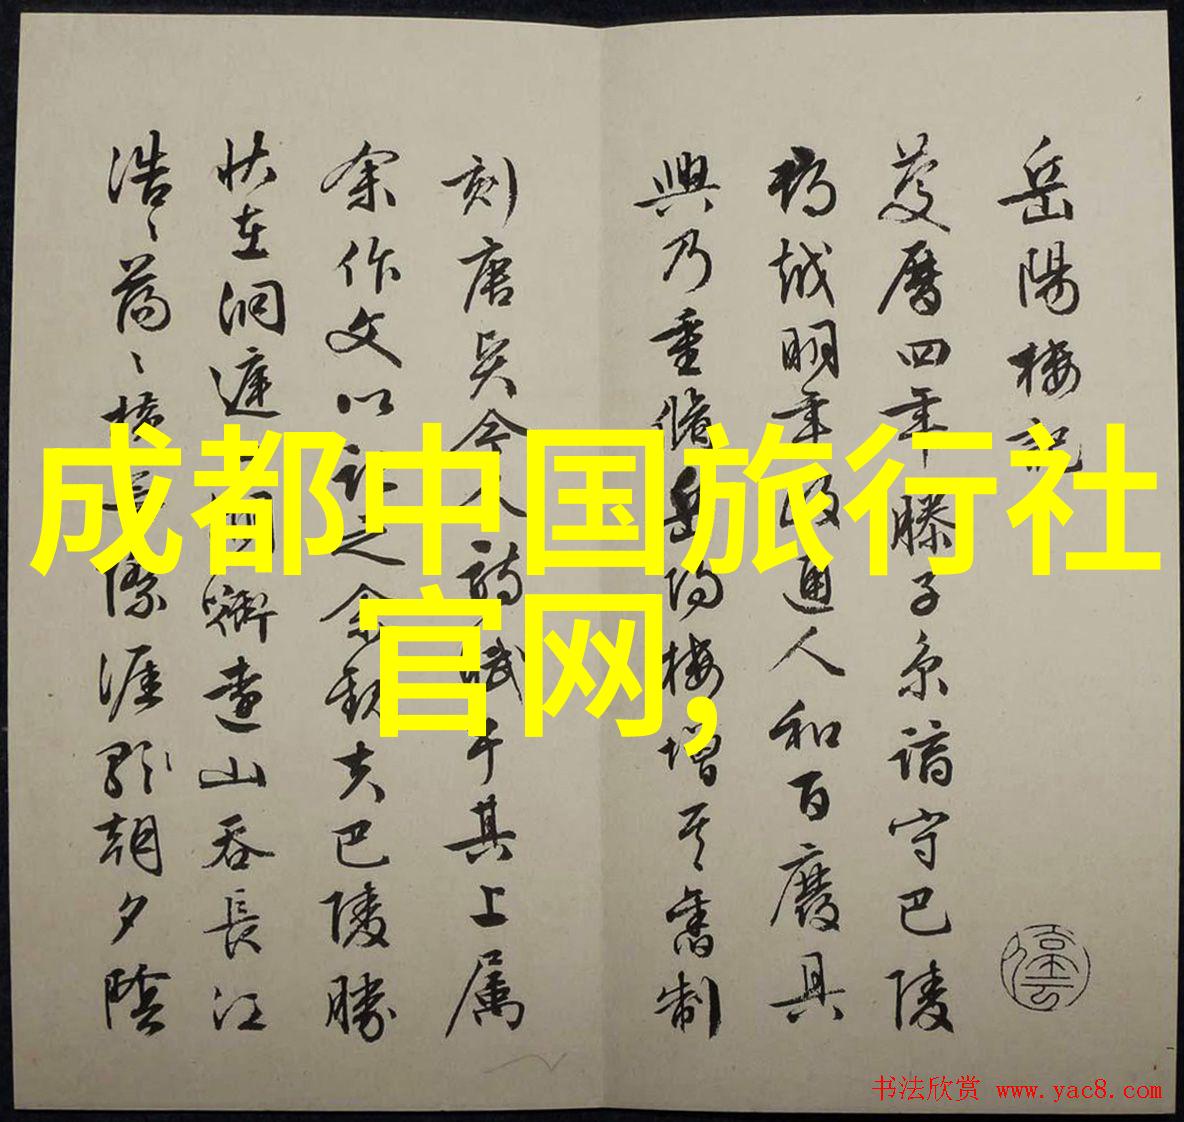 岳陽樓記
慶曆四年滕子京謫守巴陵
郡越明年政通人和百廢具
興乃重脩岳陽樓增其舊制
刻唐賢今人詩賦于其上屬
余作文以記之余觀夫巴陵勝
狀在洞庭一湖銜遠山吞長江
浩々蕩々橫無際涯朝夕陰
成都中国旅行社
官网,
书法欣赏 www.yac8.com